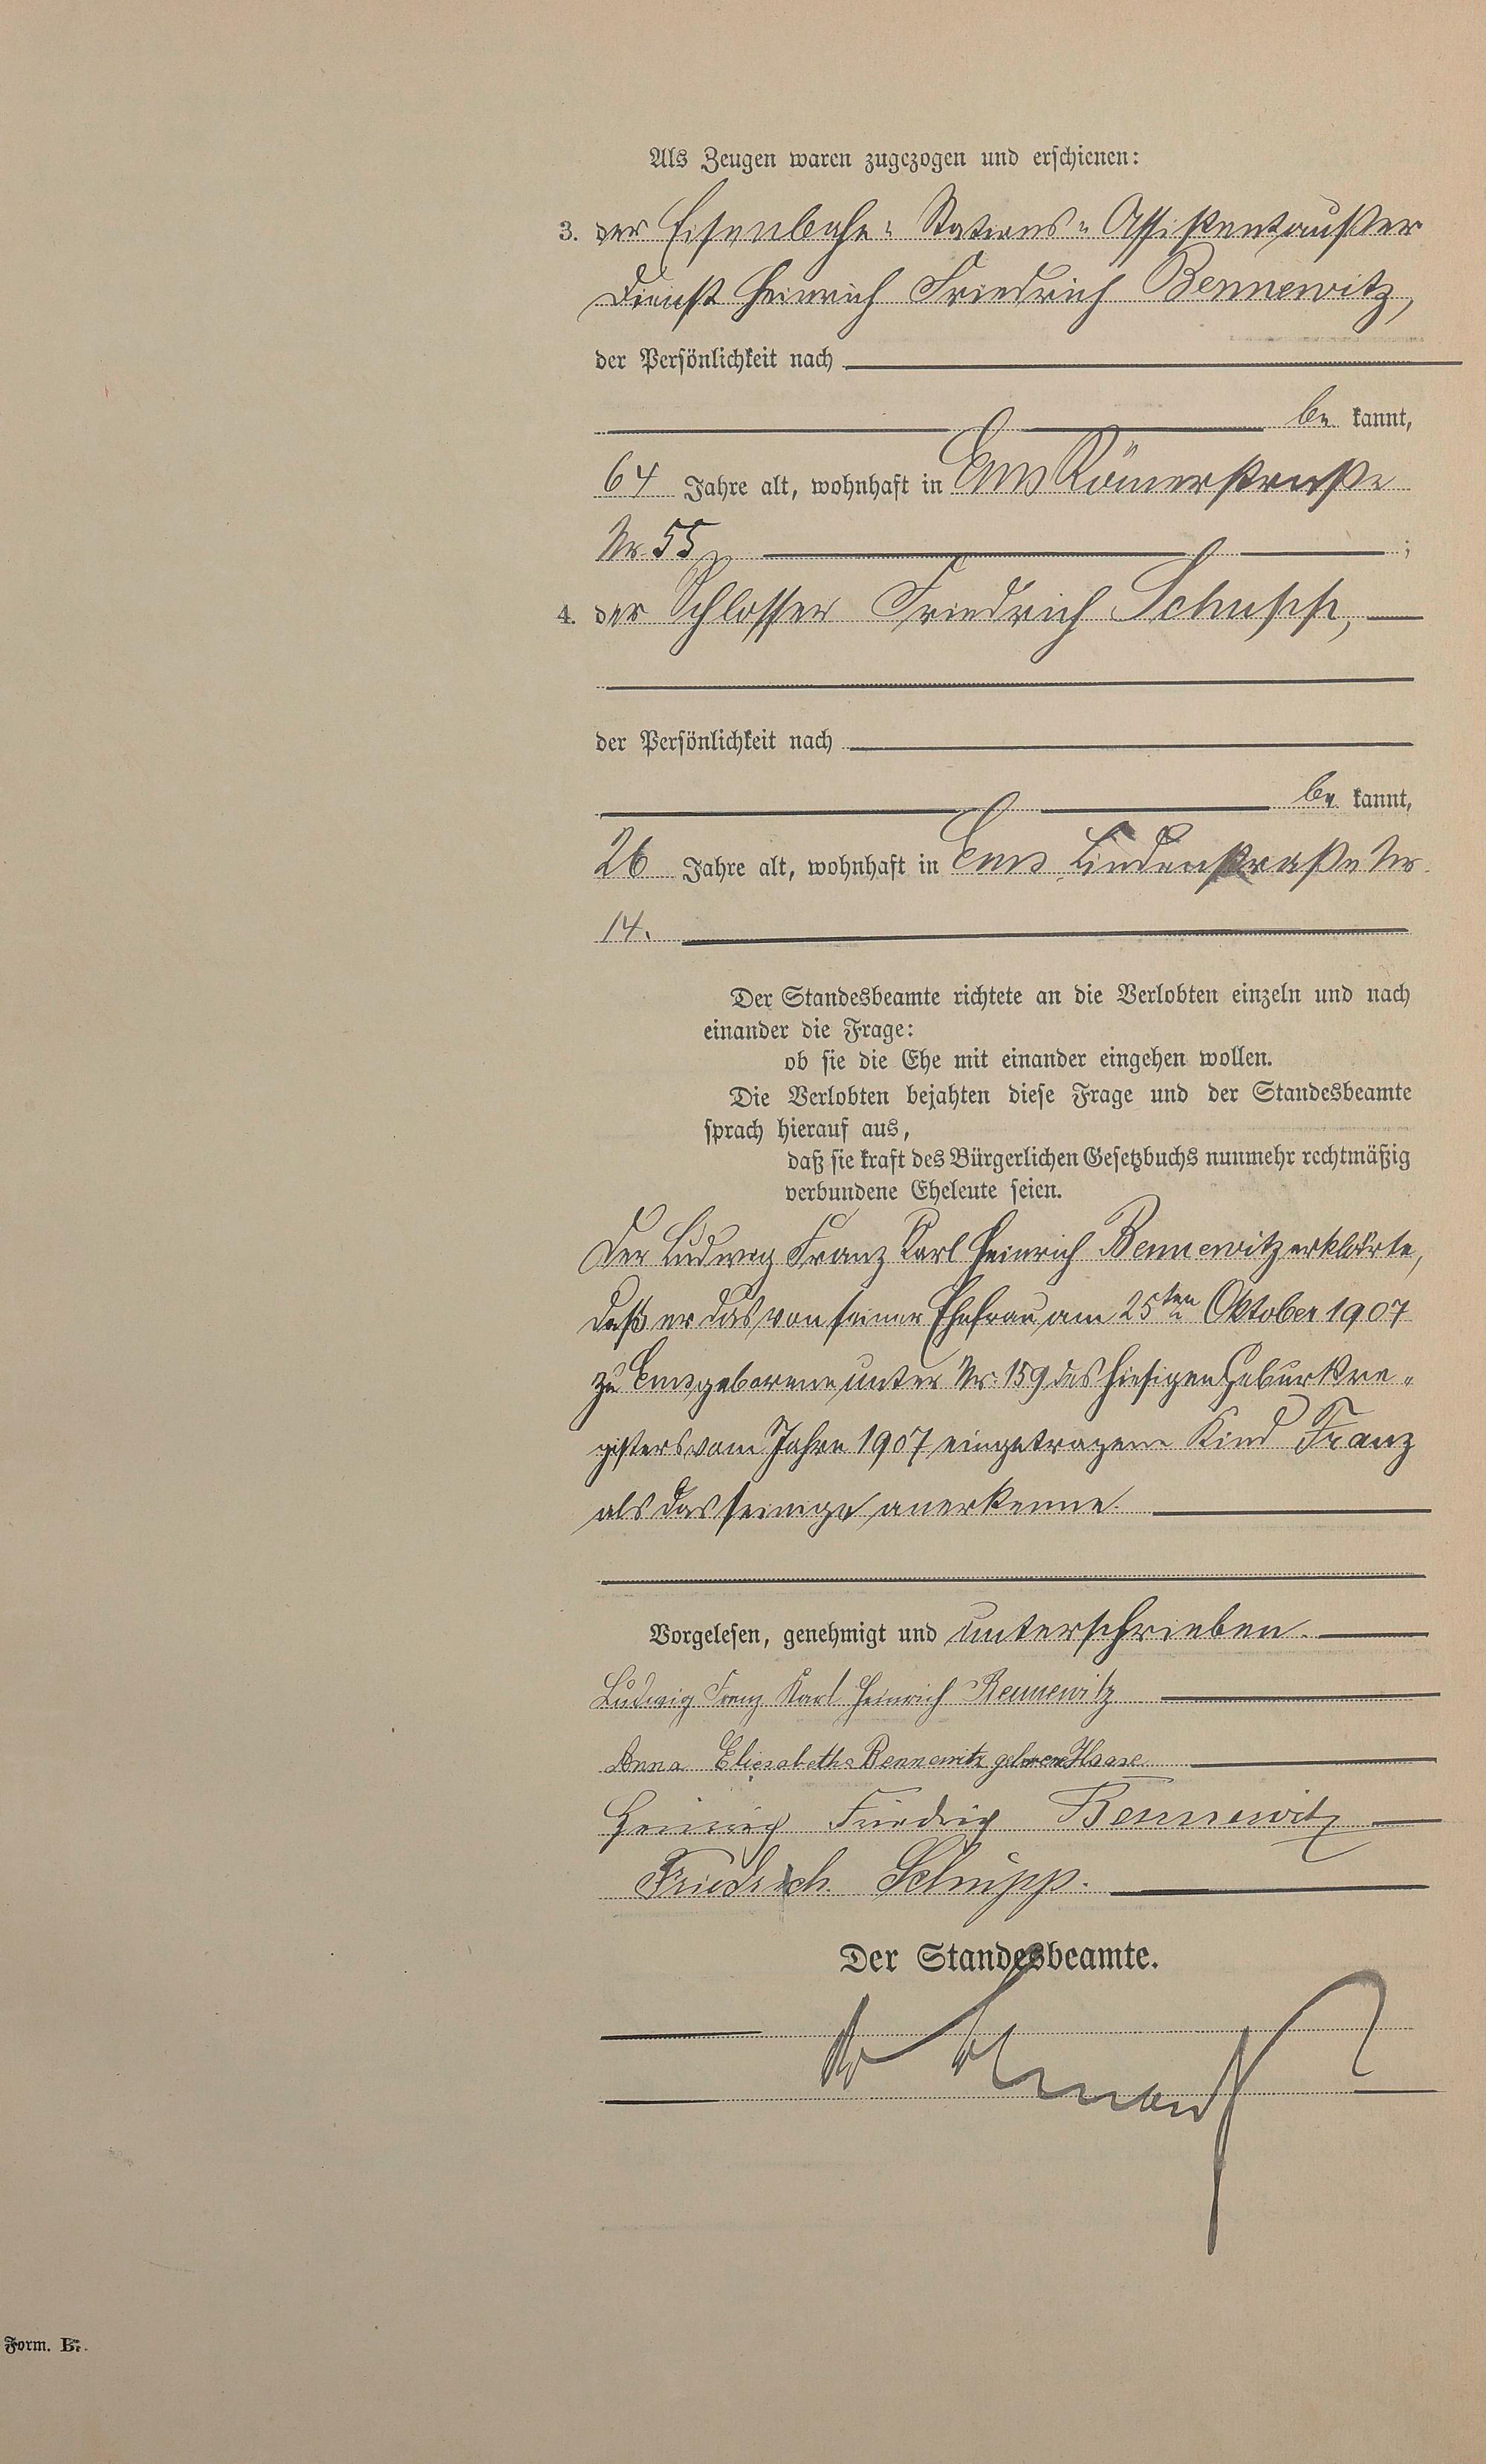 Als Zeugen waren zugezogen und erschienen:
3. der Eisenbahn- Stations- Assistent außer
Dienst Heinrich Friedrich Bennewitz,
der Persönlichkeit nach
be kannt,
64 Jahre alt, wohnhaft in Ems Römerstraße
Nr. 55 ;
4. der Schlosser Friedrich Schupp,
der Persönlichkeit nach
be kannt,
26 Jahre alt, wohnhaft in Ems Lindenstraße Nr.
14.
Der Standesbeamte richtete an die Verlobten einzeln und nach
einander die Frage:
ob sie die Ehe mit einander eingehen wollen.
Die Verlobten bejahten diese Frage und der Standesbeamte
sprach hierauf aus,
daß sie kraft des Bürgerlichen Gesetzbuchs nunmehr rechtmäßig
verbundene Eheleute seien.
Der Ludwig Franz Karl Heinrich Bennewitz erklärte,
daß er das von seiner Ehefrau am 25ten Oktober 1907
zu Ems geborene unter Nr. 159 des hiesigen Geburtsre-
gisters vom Jahre 1907 eingetragene Kind Franz
als das seinige anerkenne.
Vorgelesen, genehmigt und unterschrieben.
Ludwig Franz Karl Heinrich Bennewitz
Anna Eliesabetha Bennewitz geborene Haase
Heinrich Friedrich Bennewitz
Friedrich Schupp.
Der Standesbeamte.
Form. B.